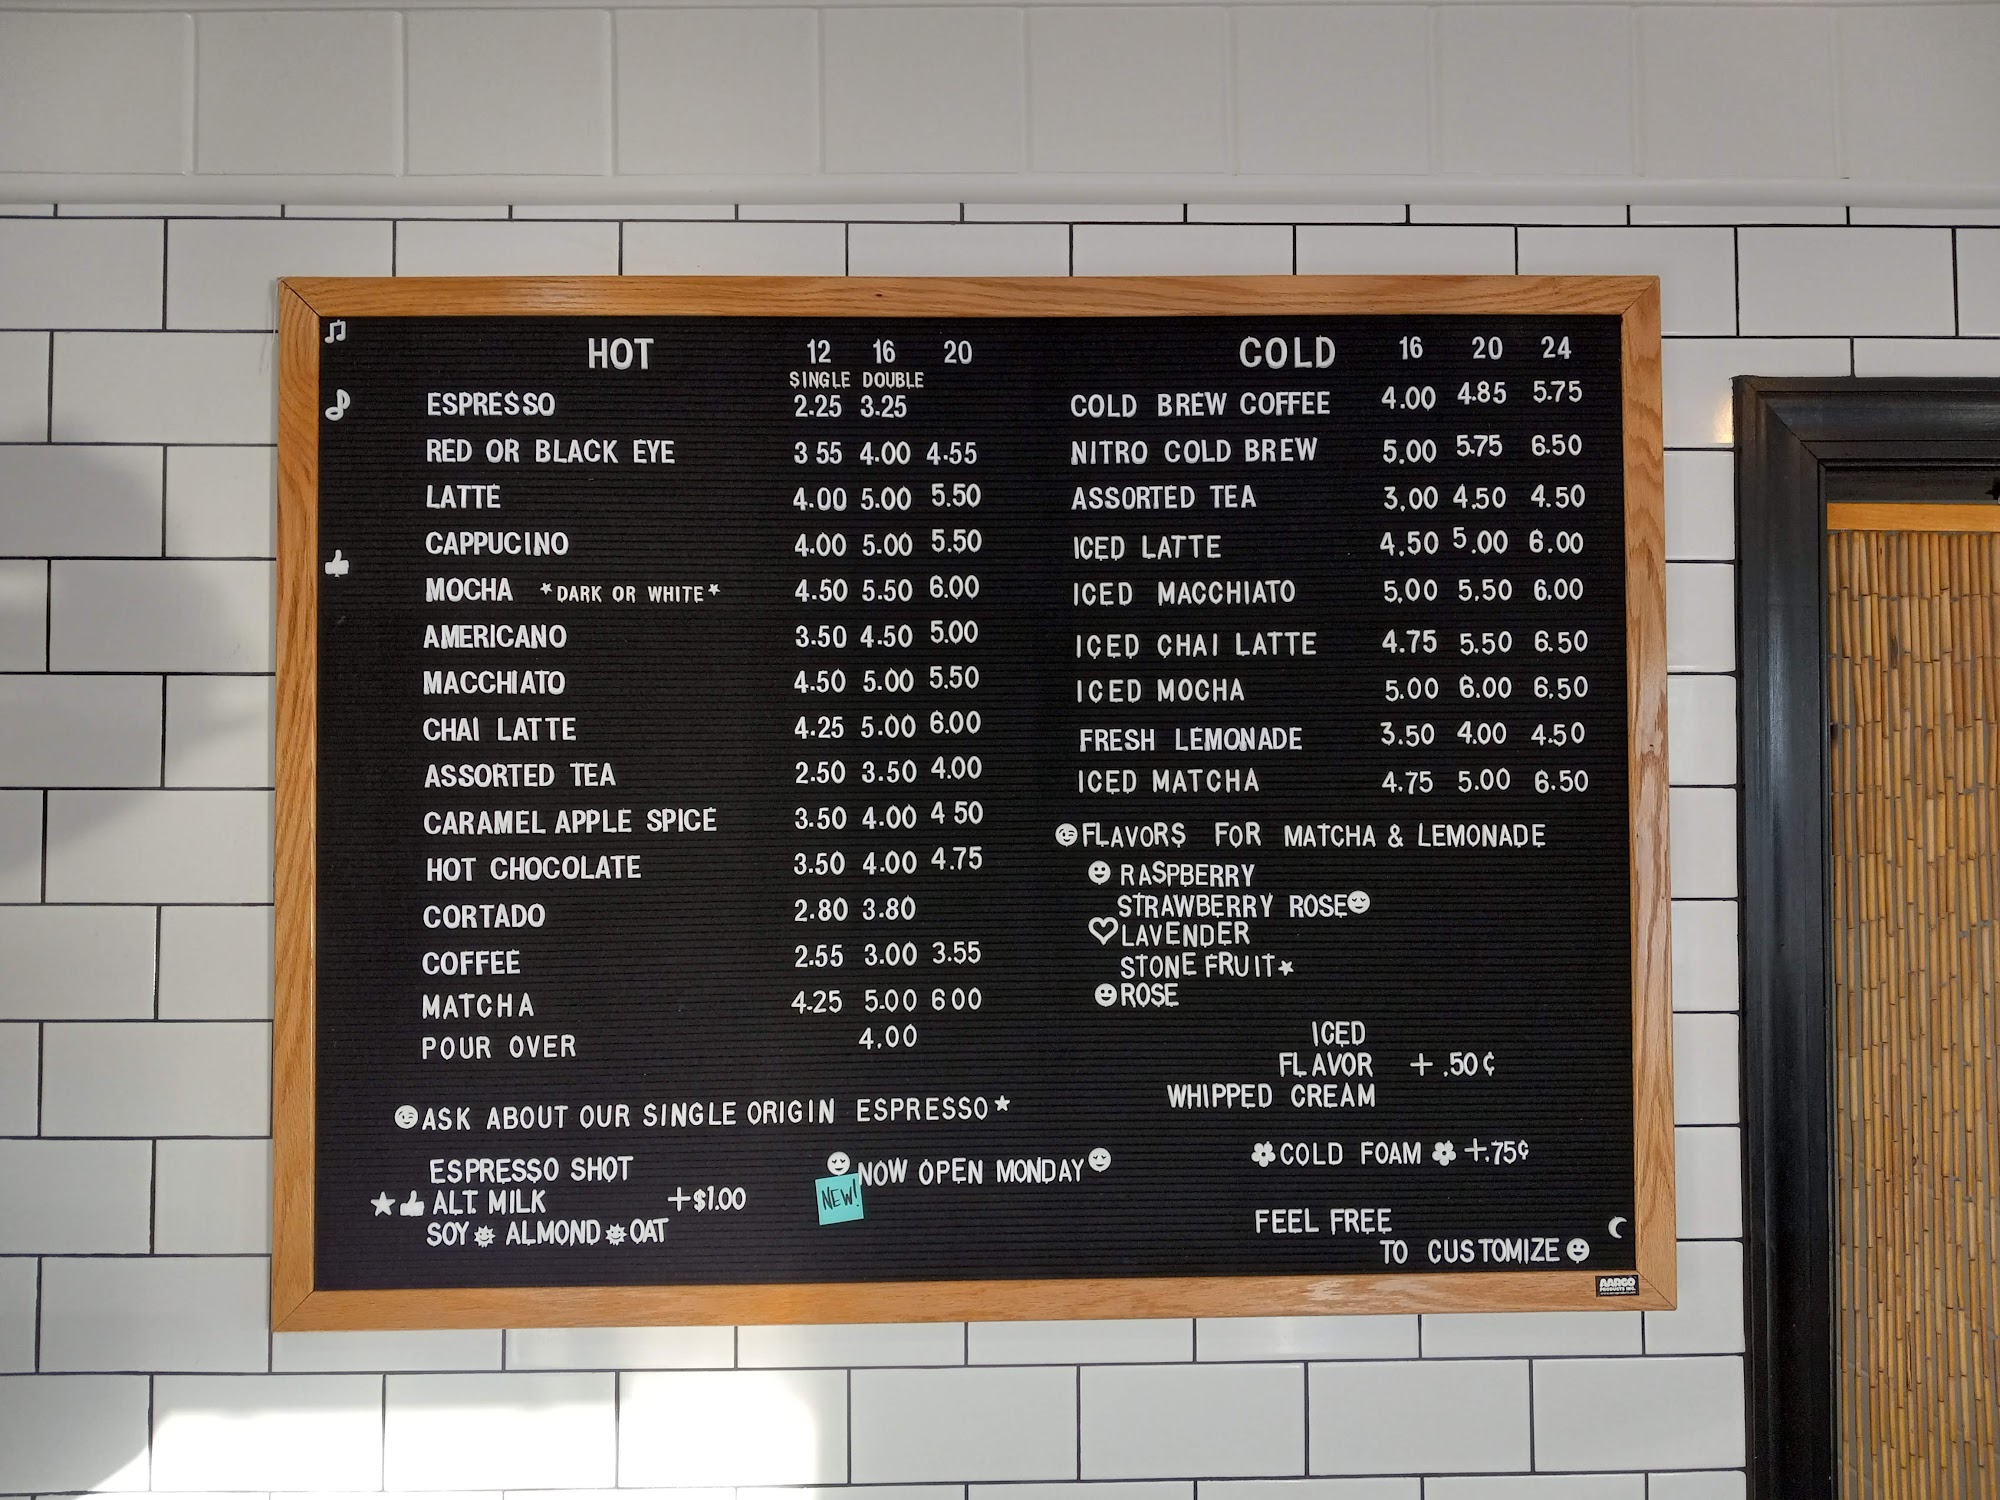 HOT 12 16 20
SINGLE DOUBLE
ESPRESSO 2.25 3.25
RED OR BLACK EYE 3 55 4.00 4.55
LATTE 4.00 5.00 5.50
CAPPUCINO 4.00 5.00 5.50
MOCHA *DARK OR WHITE* 4.50 5.50 6.00
AMERICANO 3.50 4.50 5.00
MACCHIATO 4.50 5.00 5.50
CHAI LATTE 4.25 5.00 6.00
ASSORTED TEA 2.50 3.50 4.00
CARAMEL APPLE SPICE 3.50 4.00 4 50
HOT CHOCOLATE 3.50 4.00 4.75
CORTADO 2.80 3.80
COFFEE 2.55 3.00 3.55
MATCHA 4.25 5.00 6 00
POUR OVER 4.00
ASK ABOUT OUR SINGLE ORIGIN ESPRESSO★
ESPRESSO SHOT
ALT. MILK +$1.00
SOY ALMOND OAT
NOW OPEN MONDAY
NEW!
COLD 16 20 24
COLD BREW COFFEE 4.00 4.85 5.75
NITRO COLD BREW 5.00 5.75 6.50
ASSORTED TEA 3.00 4.50 4.50
ICED LATTE 4.50 5.00 6.00
ICED MACCHIATO 5.00 5.50 6.00
ICED CHAI LATTE 4.75 5.50 6.50
ICED MOCHA 5.00 6.00 6.50
FRESH LEMONADE 3.50 4.00 4.50
ICED MATCHA 4.75 5.00 6.50
FLAVORS FOR MATCHA & LEMONADE
RASPBERRY
STRAWBERRY ROSE
LAVENDER
STONE FRUIT★
ROSE
ICED
FLAVOR + .50¢
WHIPPED CREAM
COLD FOAM +.75¢
FEEL FREE
TO CUSTOMIZE
AARCO
PRODUCTS INC.